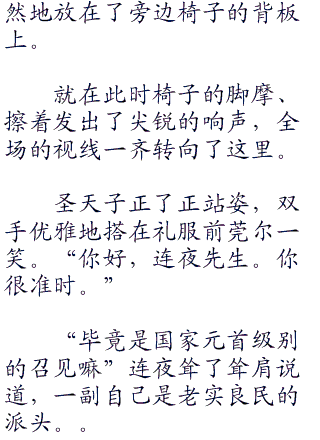 然地放在了旁边椅子的背板
上。
就在此时椅子的脚摩、
擦着发出了尖锐的响声，全
场的视线一齐转向了这里。
圣天子正了正站姿，双
手优雅地搭在礼服前莞尔一
笑。“你好，连夜先生。你
很准时。”
“毕竟是国家元首级别
的召见嘛”连夜耸了耸肩说
道，一副自己是老实良民的
派头。。